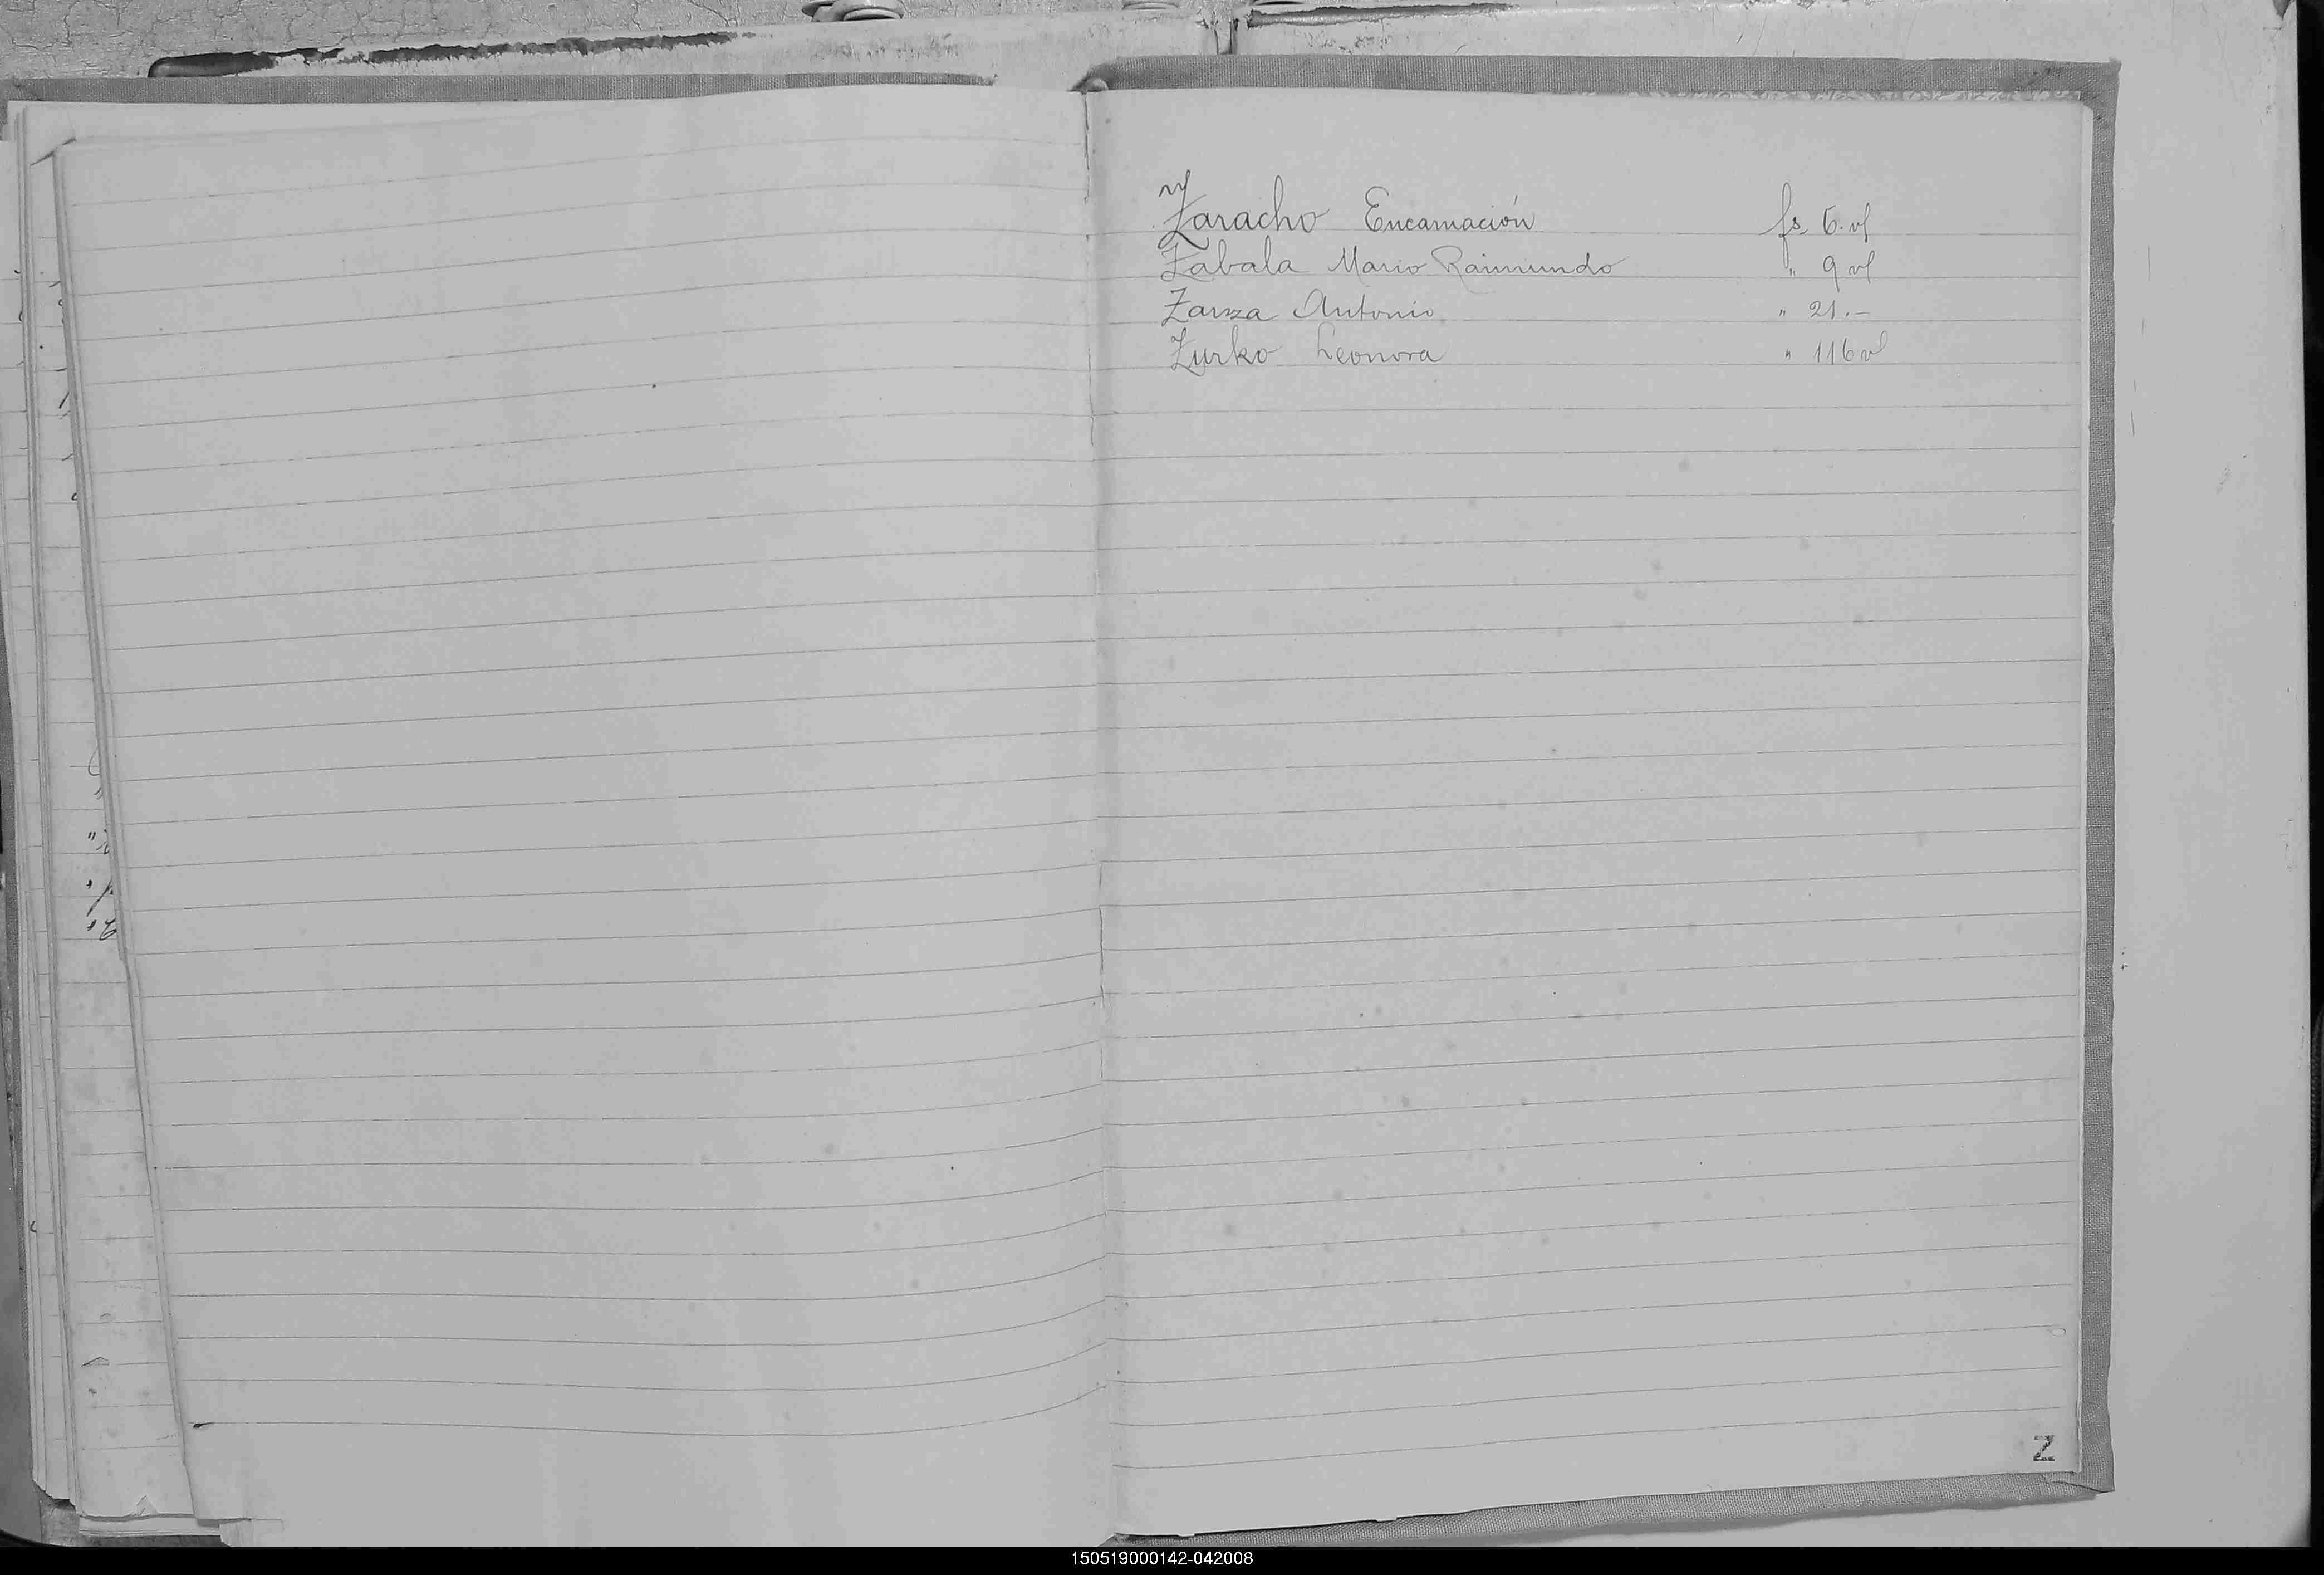 Zaracho Encarnación fs 6. vl
Zabala Mario Raimundo " 9 vl
Zarza Antonio " 21.-
Zurko Leonora " 116 vl
Z
150519000142-042008